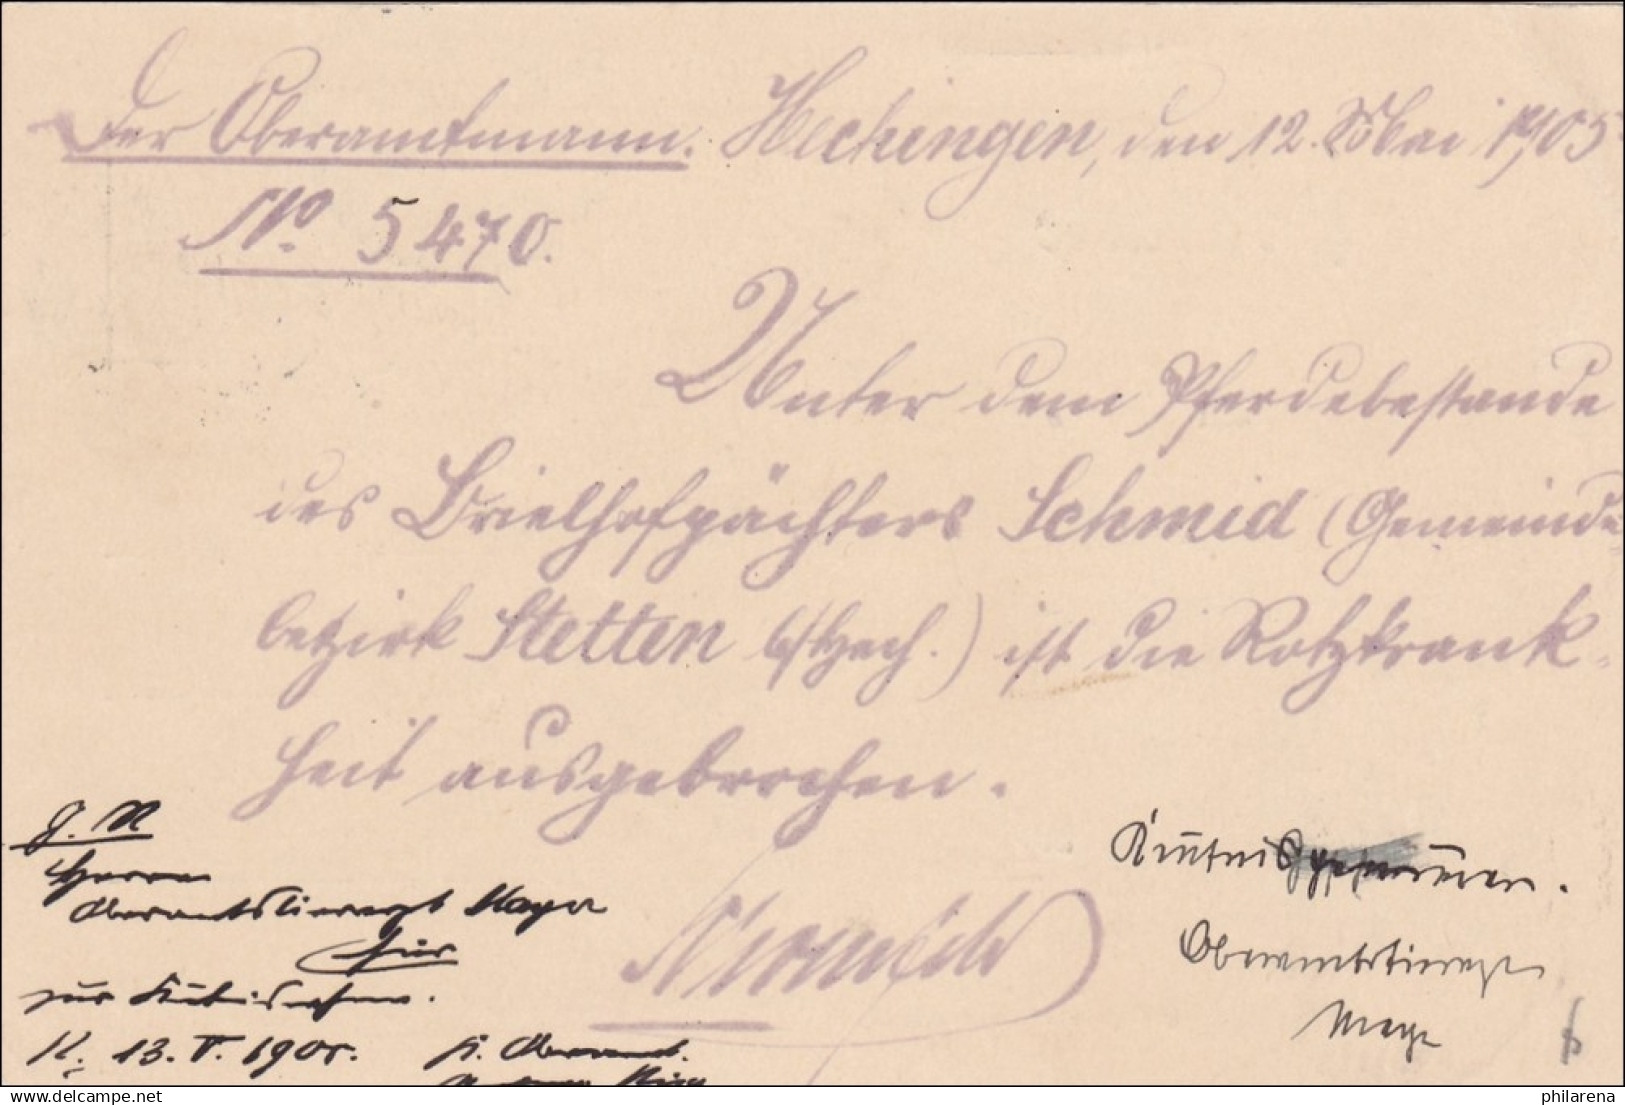 Der Oberamtmann. Hechingen, den 12. Mai 1905
No. 5470.
Unter dem Pferdebestande
des Brielhofpächters Schmid (Gemeinde-
bezirk Stetten b/Hech.) ist die Rotzkrank-
heit ausgebrochen.
g. R
Herrn
Oberamtstierarzt Mayer
hier
zur Kentnisnahme.
H. 13. V. 1905.
K. Oberamt.
Kentnis genommen.
Oberamtstierarzt
Mayer
delcampe.net
philarena